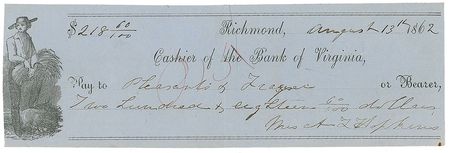 $218 60/100 Richmond, August 13th 1862
Cashier of the Bank of Virginia,
Pay to Pleasants & Frayser or Bearer,
Two Hundred & eighteen 60/100 dollars
Mrs A F Hopkins